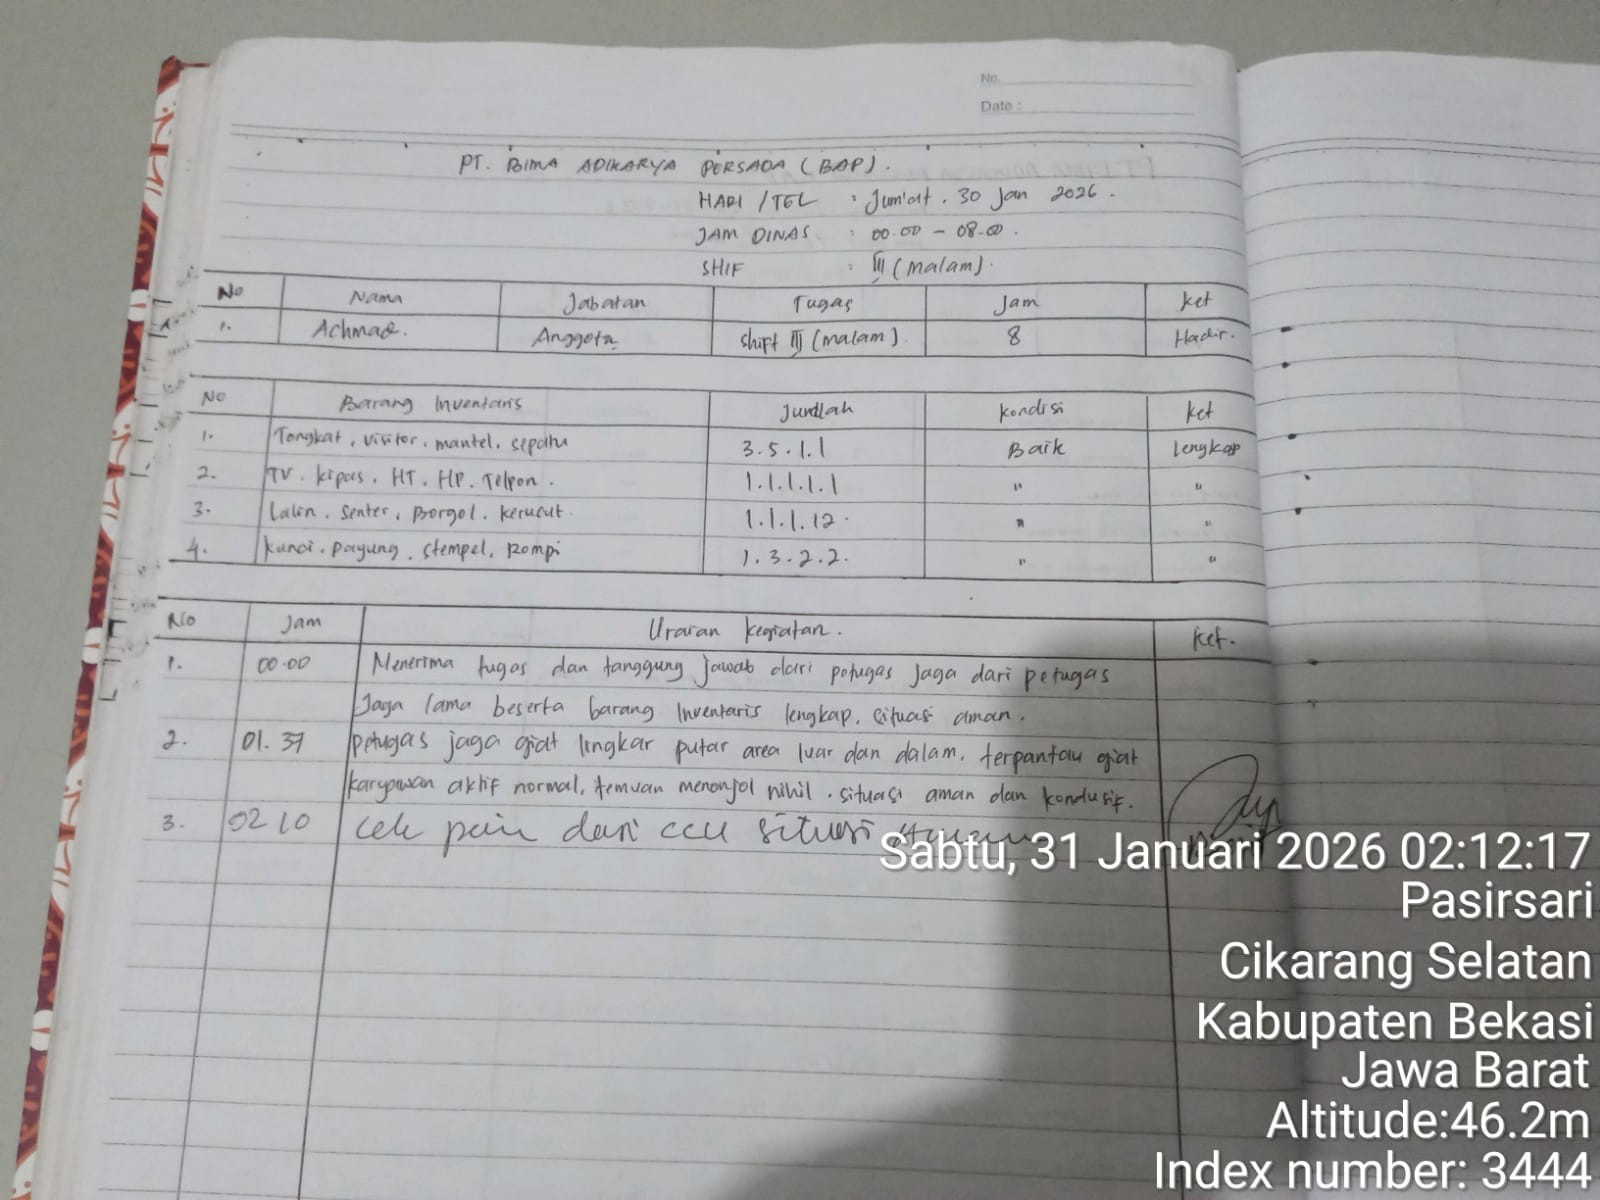 No.
Date :
PT. BIMA ADIKARYA PERSADA (BAP).
HARI / TGL : Jum'at . 30 Jan 2026 .
JAM DINAS : 00.00 - 08.00 .
SHIF : III (malam).
No Nama Jabatan Tugas Jam ket
1. Achmad. Anggota shift III (malam). 8 Hadir.
No Barang Inventaris Jumlah kondisi ket
1. Tongkat, visitor, mantel, sepatu 3.5.1.1 Baik lengkap
2. TV. kipas. HT. HP. Telpon. 1.1.1.1.1 " "
3. Lalin. senter, Borgol. kerucut. 1.1.1.12. " "
4. kunci. payung. stempel. Rompi 1.3.2.2. " "
No Jam Uraian kegiatan. ket.
1. 00.00 Menerima tugas dan tanggung jawab dari petugas jaga dari petugas
Jaga lama beserta barang Inventaris lengkap, situasi aman.
2. 01.37 petugas jaga giat lingkar putar area luar dan dalam. terpantau giat
karyawan aktif normal, temuan menonjol nihil. situasi aman dan kondusif.
3. 02 10 cek dari situasi
Sabtu, 31 Januari 2026 02:12:17
Pasirsari
Cikarang Selatan
Kabupaten Bekasi
Jawa Barat
Altitude:46.2m
Index number: 3444